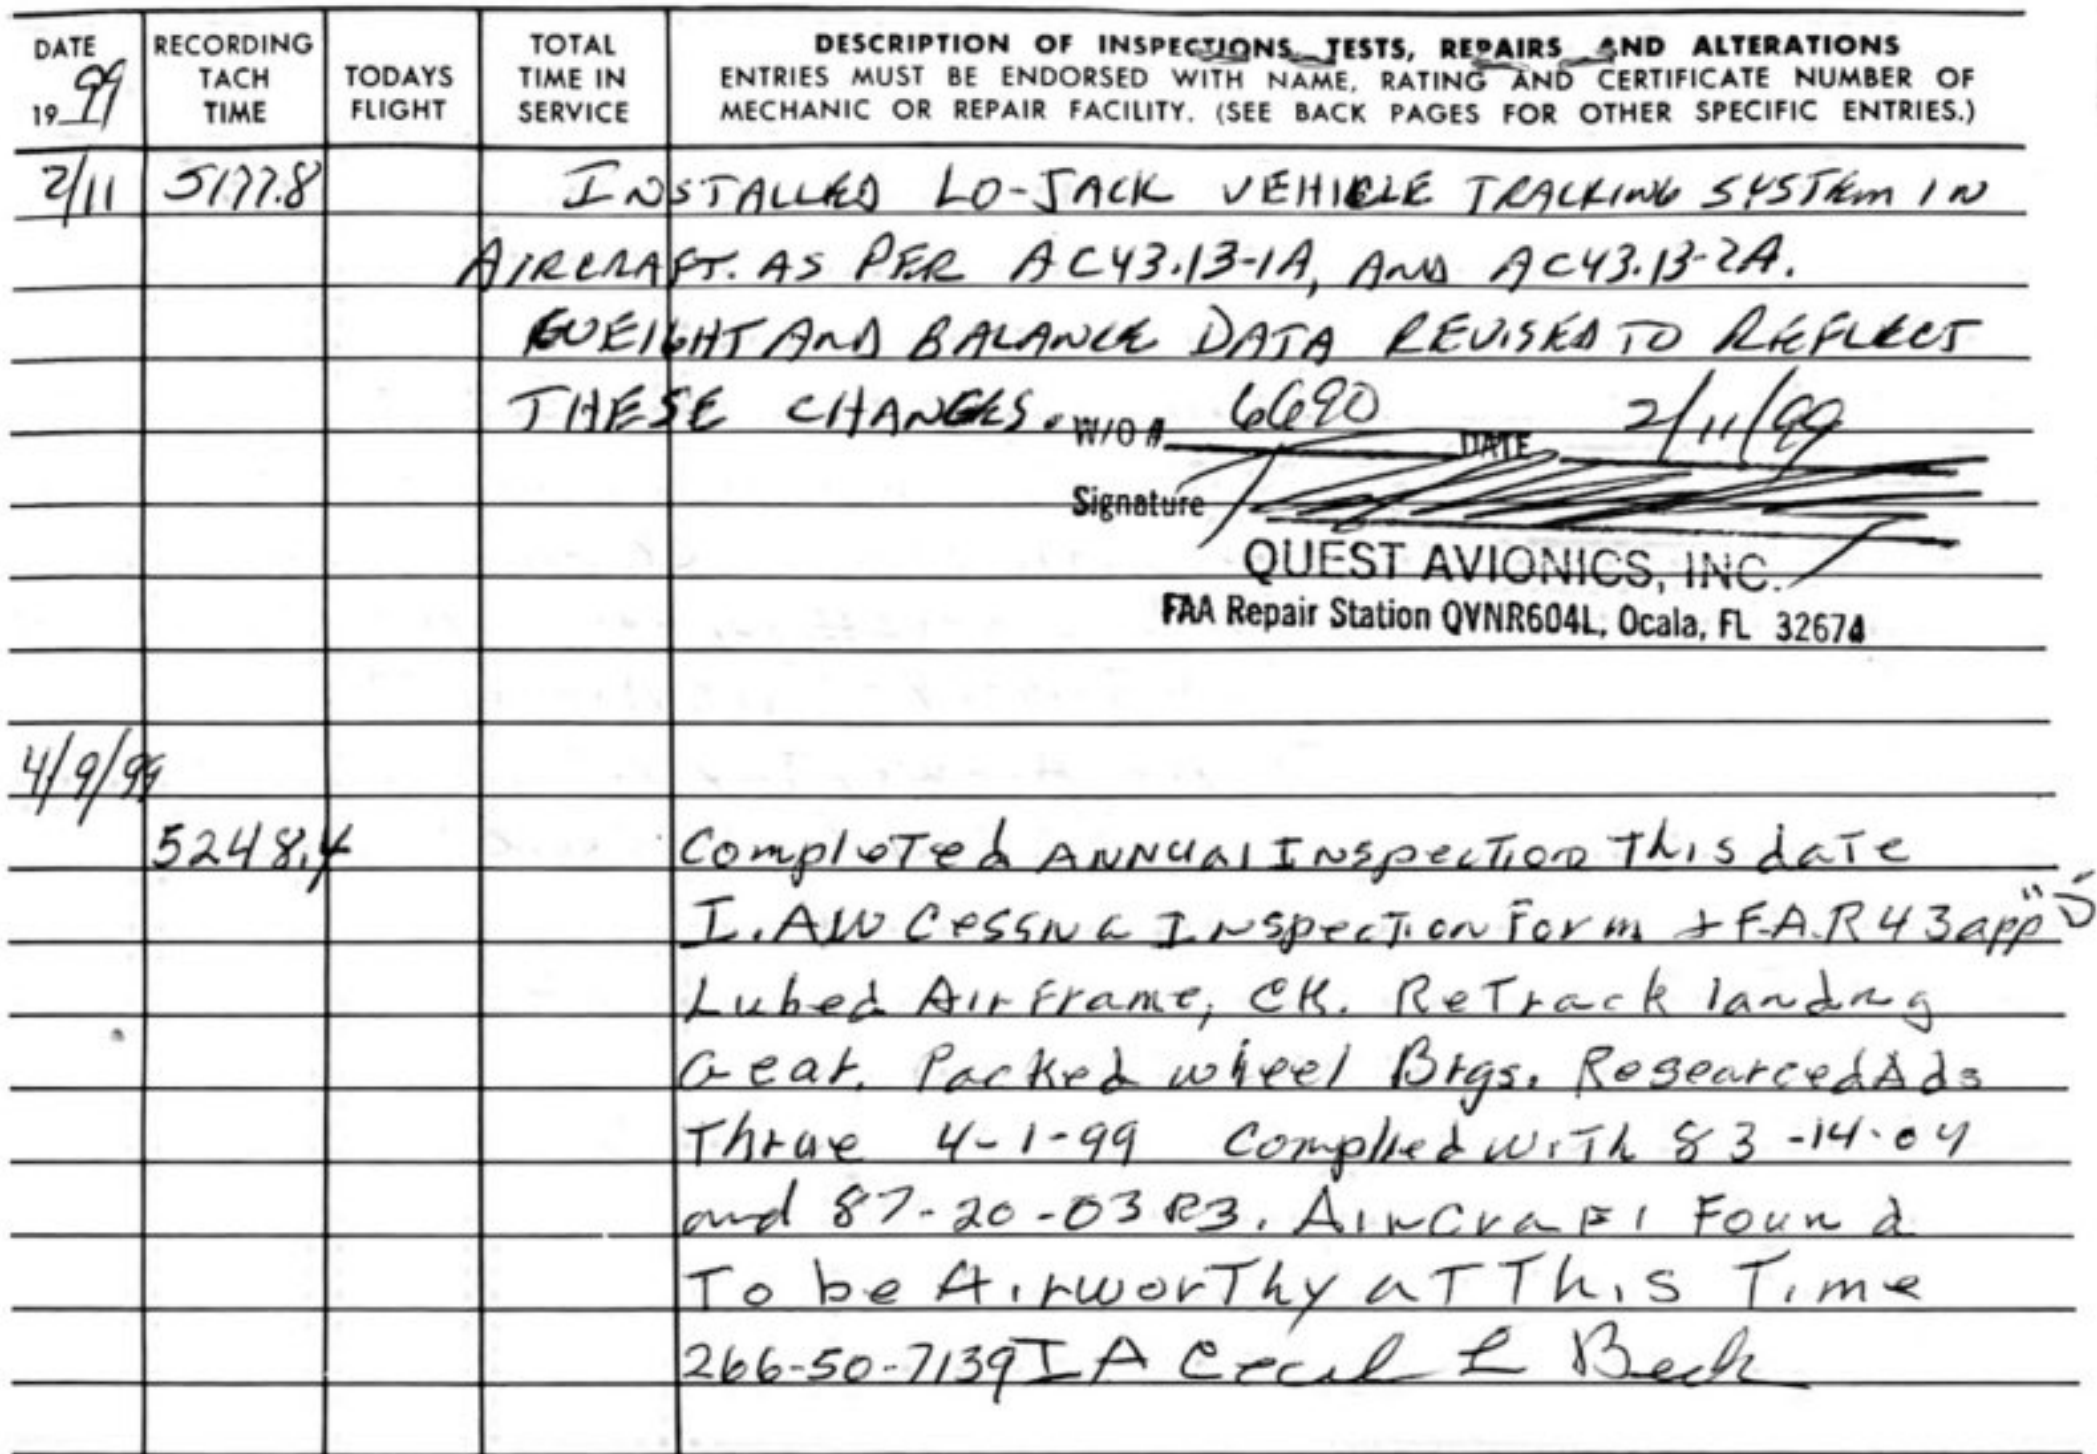 DATE 1999 RECORDING TACH TIME TODAYS FLIGHT TOTAL TIME IN SERVICE DESCRIPTION OF INSPECTIONS, TESTS, REPAIRS AND ALTERATIONS
ENTRIES MUST BE ENDORSED WITH NAME, RATING AND CERTIFICATE NUMBER OF
MECHANIC OR REPAIR FACILITY. (SEE BACK PAGES FOR OTHER SPECIFIC ENTRIES.)
2/11 5177.8 INSTALLED LO-JACK VEHICLE TRACKING SYSTEM IN
AIRCRAFT. AS PER AC43.13-1A, AND AC43.13-2A.
WEIGHT AND BALANCE DATA REVISED TO REFLECT
THESE CHANGES. W/O # 6690 DATE 2/11/99
Signature
QUEST AVIONICS, INC.
FAA Repair Station QVNR604L, Ocala, FL 32674
4/9/99
5248.4 Completed ANNUAl Inspection This date
I.AW Cessna Inspection Form + F.A.R 43 app "D"
Lubed Airframe, CK. ReTrack landng
Gear. Packed wheel Brgs. Researced Ads
Thrue 4-1-99 Complied with 83-14-04
and 87-20-03 R3. Aircraft Found
To be Airworthy at This Time
266-50-7139 IA Cecil L Beck